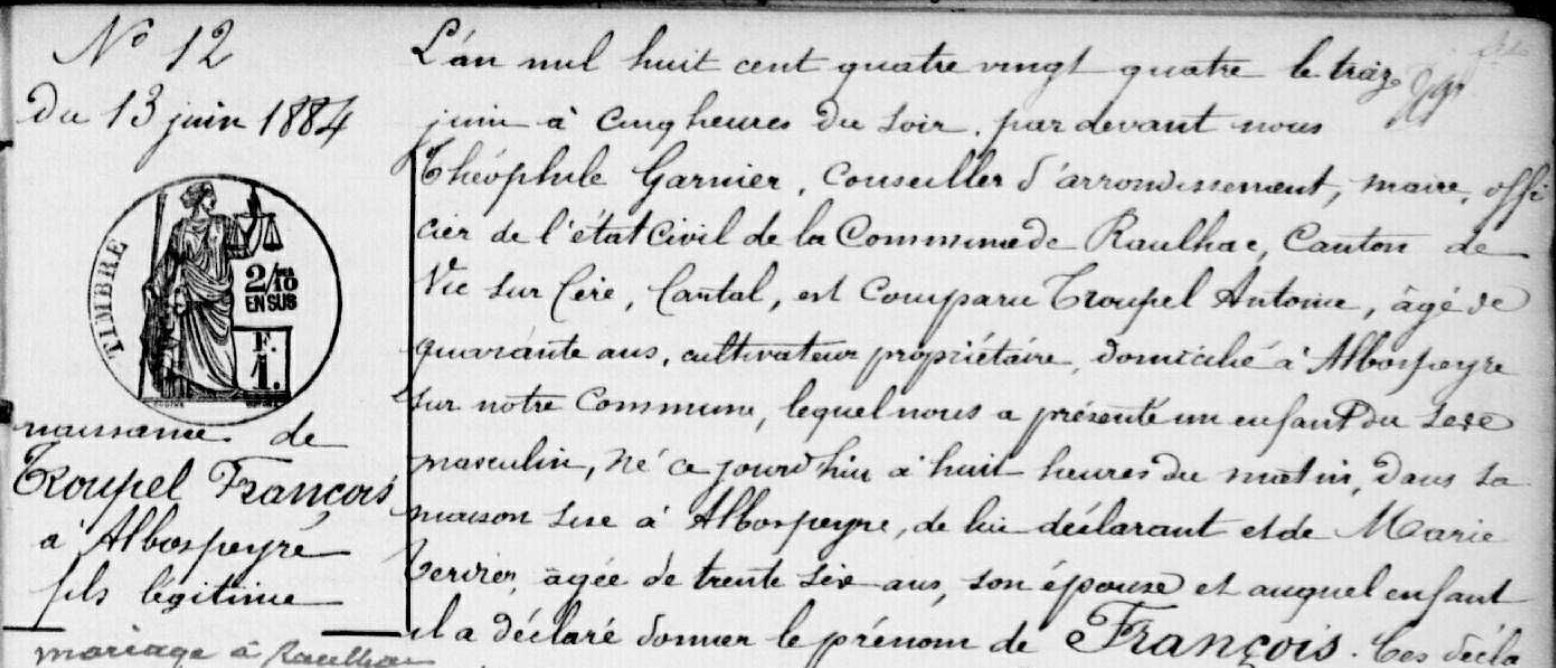 N° 12
Du 13 juin 1884
TIMBRE
2/10
EN SUS
F.
1.
naissance de
Troupel François
à Albospeyre
fils légitime
mariage à Raulhac
L'an mil huit cent quatre vingt quatre le treize
juin à cinq heures du soir. par devant nous
Théophile Garnier, Conseiller d'arrondissement, maire, offi
cier de l'état Civil de la Commune de Raulhac, Canton de
Vic sur Cère, Cantal, est Comparu Troupel Antoine, âgé de
quarante ans, cultivateur propriétaire, domicilié à Albospeyre
sur notre Commune, lequel nous a présenté un enfant du sexe
masculin, né ce jourd'hui à huit heures du matin, dans sa
maison sise à Albospeyre, de lui déclarant et de Marie
âgée de trente six ans, son épouse et auquel enfant
il a déclaré donner le prénom de François. Ces décla